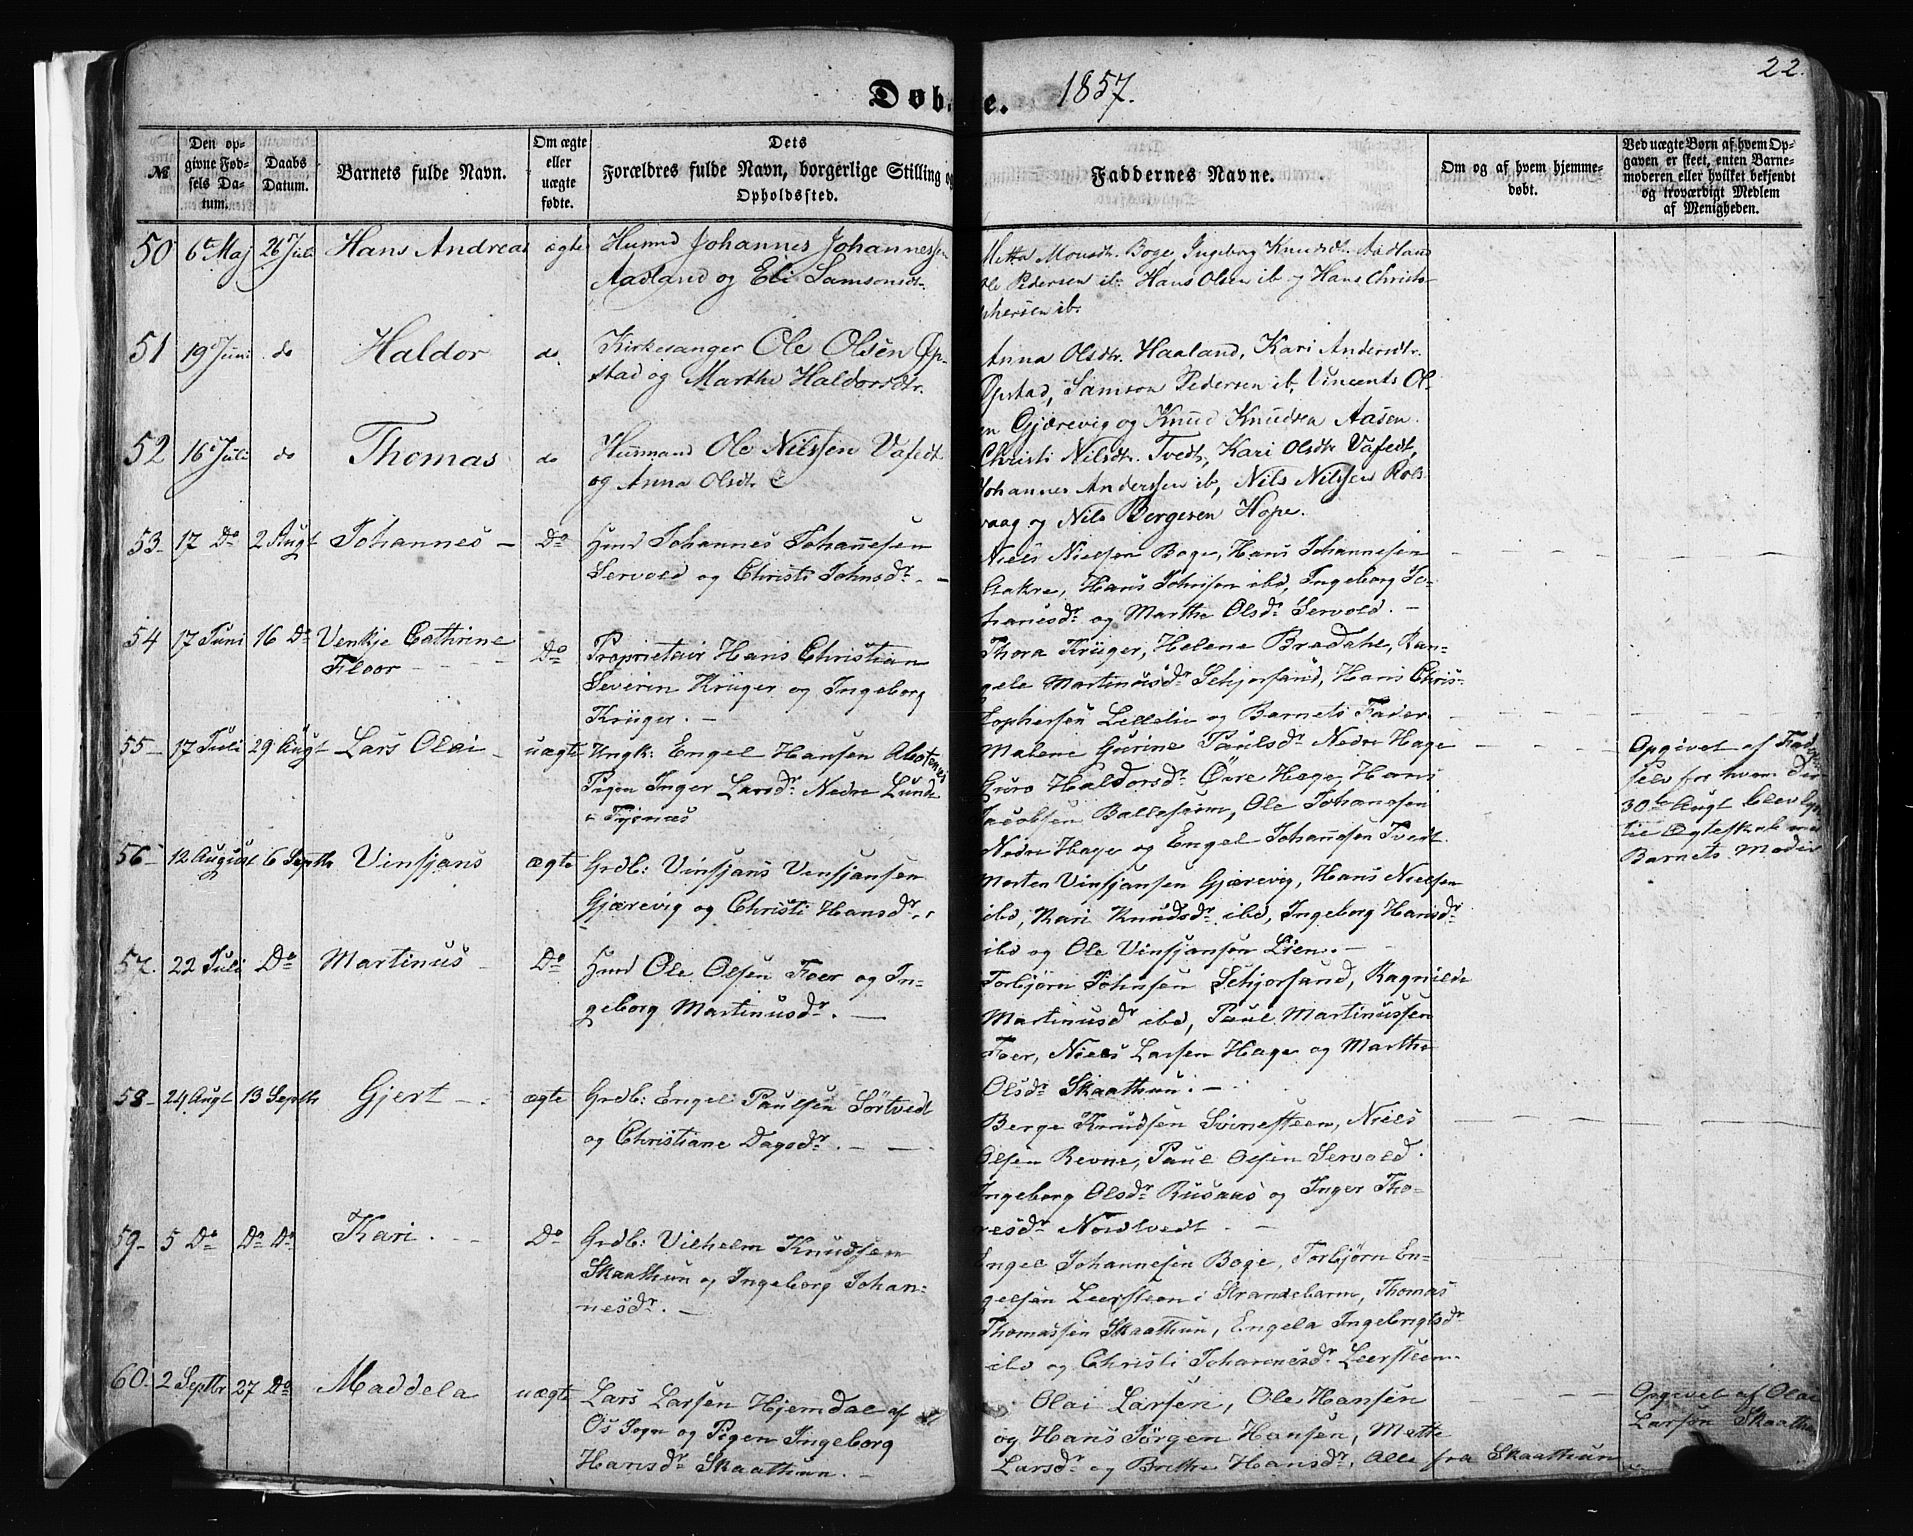 22.
Døbte. 1857.
№
Den op-
givne Fød-
sels Da-
tum.
Daabs
Datum.
Barnets fulde Navn.
Om ægte
eller
uægte
fødte.
Dets
Forældres fulde Navn, borgerlige Stilling og
Opholdssted.
Faddernes Navne.
Om og af hvem hjemme-
døbt.
Ved uægte Børn af hvem Op-
gaven er skeet, enten Barne-
moderen eller hvilket bekjendt
og troværdigt Medlem
af Menigheden.
50 6te Maj 26 Juli Hans Andreas ægte
Huusmd Johannes Johannessen
Aadland og Eli Samsonsdr.
Metta Monsdr. Boge, Ingeborg Knudsdr. Aadland
Ole Pedersen ib. Hans Olsen ib og Hans Christo-
phersen ib.
51 19 Juni do Haldor do
Kirkesanger Ole Olsen Øp-
stad og Marthe Haldorsdtr.
Anna Olsdtr. Haaland, Kari Andersdtr.
Øpstad, Samson Pedersen ib, Vincents Ol-
en Gjærevig og Knud Knudsen Aasen.
52 16 Juli do Thomas do
Huusmand Ole Nilssen Vafedt
og Anna Olsdtr
Christi Nilsdtr. Tvedt, Kari Olsdtr Vafedt,
Johannes Anderssen ib, Nils Nilssen Rols-
vaag og Nils Bergesen Hope.
53 - 17 Do 2 Augt Johannes - Do
Huusmd Johannes Johannesen
Servold og Christi Johnsdr. -
Niels Nielsen Boge, Hans Johannesen
Aakre, Hans Johnsen ibd, Ingeborg Jo-
hansdr og Marthe Olsdr Servold. -
54 17 Juni 16 Do Venkje Cathrine
Floor - Do
Proprietair Hans Christian
Severin Krüger og Ingeborg
Krüger. -
Thora Krüger, Helene Bredahl, Ran-
gele Martinusdr Schjorsand, Hans Chris-
tophersen Lellelie og Barnets Fader
55 - 17 Juli 29 Augt Lars Olai - uægte
Ungk: Engel Hansen
Pigen Inger Larsdr Nedre Lunde
i Tysnæs
Malene Gurine Paulsdr Nedre Hage
Guro Haldorsdr Övre Hage, Hans
Jacobsen Ballesem, Ole Johannesen
Nedre Hage og Engel Johannesen Tvedt.
Opgivet af Faderen
selv for hvem der
30te Augt blev lyst
til Ægteskab med
Barnets Moder
56 - 12 August 6 Septbr Vinsjans ægte
Grdb: Vinsjans Vinsjansen
Gjærevig og Christi Hansdr.
Morten Vinsjansen Gjærevig, Hans Nielsen
ibd, Kari Knudsdr ibd, Ingeborg Hansdr
ibd og Ole Vinsjansen Lien. -
57. 22 Juli Do Martinus - Do
Huusmd Ole Olsen Foer og In-
geborg Martinusdr. -
Torbjørn Johnsen Schjorsand, Ragnilde
Martinusdr ibd, Paul Martinussen
Foer, Niels Larsen Hage og Marthe
Olsdr Skaathun. -
58 - 24 Augt 13 Septbr Gjert - ægte
Grdb: Engel Paulsen Sörtvedt
og Christiane Dagsdr. -
Berge Knudsen Svinesteen, Niels
Olsen Revne, Paul Olsen Servold.
Ingeborg Olsdr Rusaas og Inger Tho-
resdr Nordtvedt. -
59 - 5 Do Do Do Kari. - Do
Grdb: Vilhelm Knudsen
Skaathun og Ingeborg Johan-
nesdr. -
Engel Johannesen Boge, Torbjørn En-
gelsen Leersteen i Strandebarm, Thomas
Thomassen Skaathun, Engela Ingebrigtsdr
ibd og Christi Johannesdr Leersteen.
60. 2 Septbr 27 Do Maddela uægte
Lars Larsen Hjemdal af
Os Sogn og Pigen Ingeborg
Hansdr Skaathun. -
Olai Larsen, Ole Hansen
og Hans Jörgen Hansen, Mette
Larsdr og Brithe Hansdr. Alle fra Skaathun
Opgivet af Olai
Larsen Skaathun